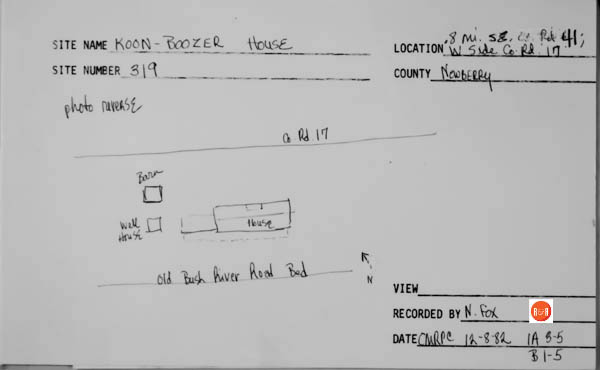 SITE NAME KOON-BOOZER HOUSE
SITE NUMBER 319
LOCATION .8 mi. SE. Co. Rd 41;
W Side Co. Rd. 17
COUNTY Newberry
photo reverse
Co Rd 17
Barn
Well
House
House
Old Bush River Road Bed
N
VIEW
RECORDED BY N. Fox
R&R
DATE CMRPC 12-8-82 1A 3-5
B 1-5